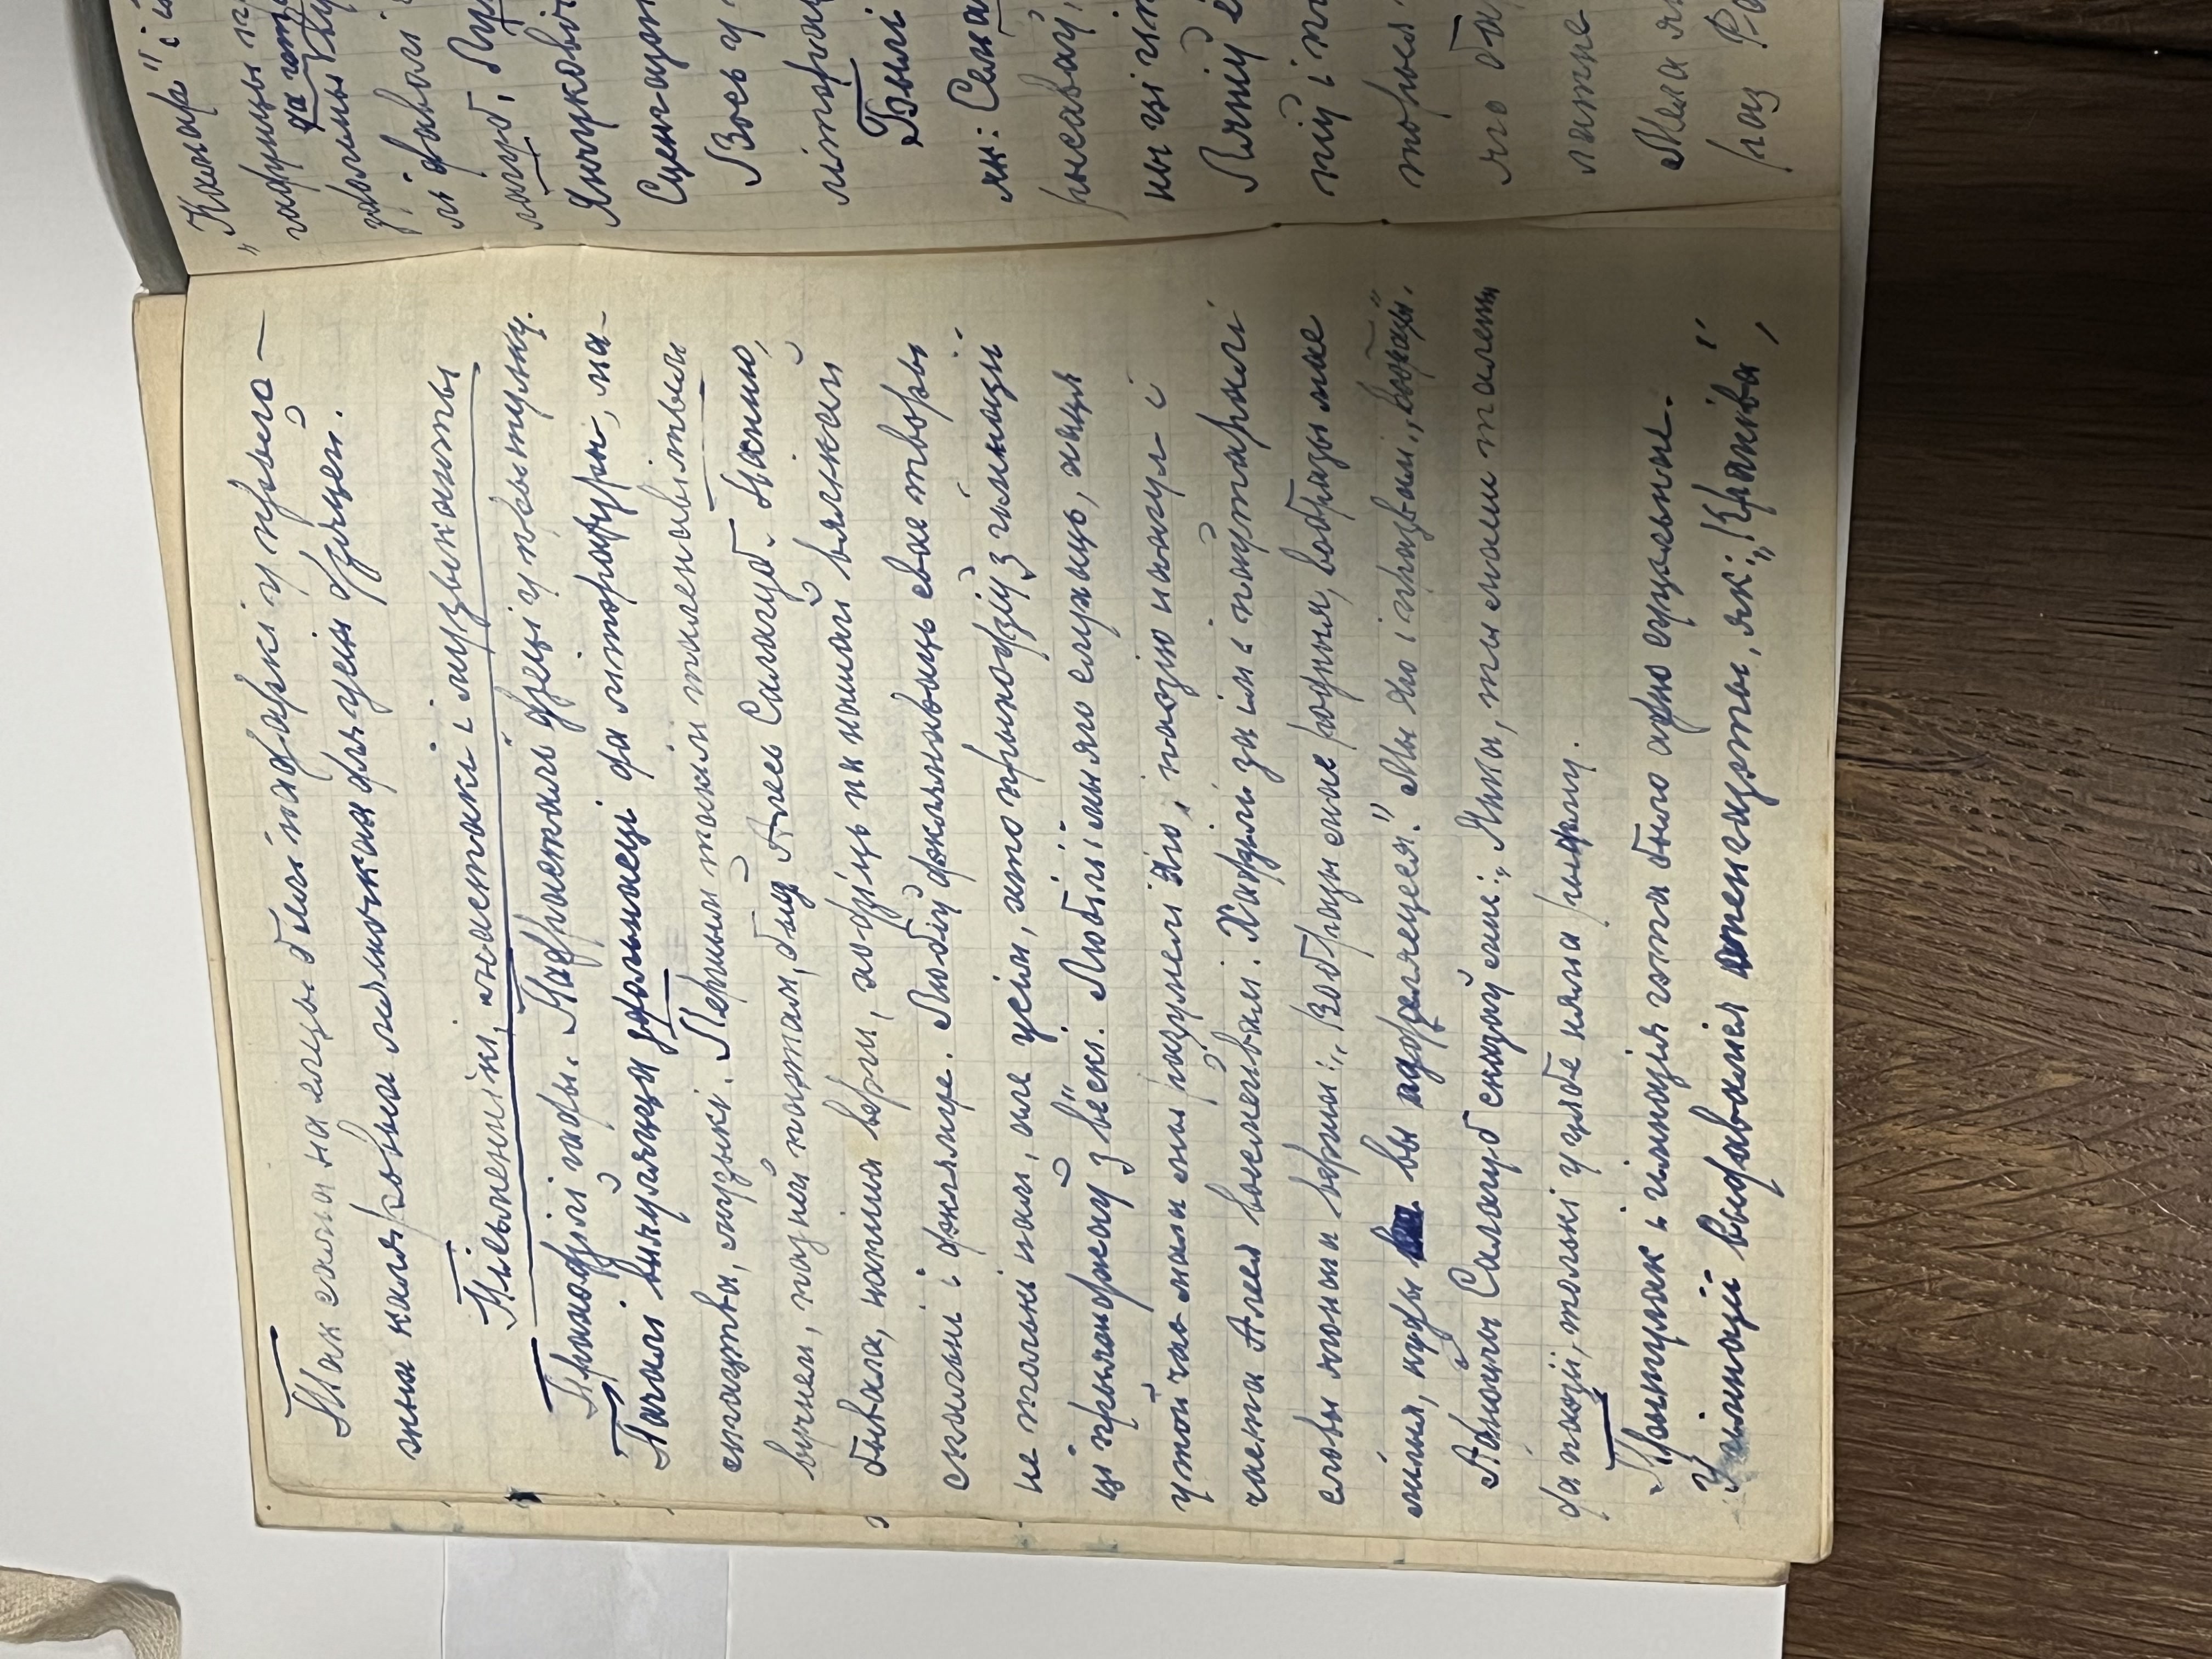 Так сама на елцы былі падаркі у прыго-
жых каляровых мяшочках для усіх дзяцей.
Пісьменнікі, мастакі і музыканты
Праходзілі гады. Падрасталі дзеці у прытулку.
Пачалі выяўляцца здольнасці да літэратуры, ма-
стацтва, музыкі. Першым такім таленавітым
вучнем, пазней паэтам, быў Алесь Салагуб. Помню,
бывала, напіша верш, ходзіць па нашай вялікай
спальні і дэклямуе. Любіў дэклямаваць свае творы
не толькі нам, але усім, хто прыходзіў з гімназіі
ці прыяжджаў з вёскі. Любілі і мы яго слухаць, хаця
у той час мала мы разумелі яго, паэзію наагул і
часта Алеся высмейвалі. Хадзілі за ім і паўтаралі
словы ягонага верша: „Вобразы мае родныя, вобразы мае
мілыя, куды вы аддзеляецеся". Мы яго і празвалі „Вобразы".
Аднойчы Салагуб сказаў мне: „Янка, ты маеш талент
да паэзіі, толькі у цябе няма рыфму.
Прытулак і гімназія гэта было адно суцэльнае.
У гімназіі выдаваліся стенгазэты, як: „Крапіва",
„Камар" і
гадунцы
да гэт
здольны
лі давалі
лагуб,
Янчуковіч
Сценгазэт
Вось у
літэрац
Былі
як:
рысаваў,
ны ці гім
Ляпіў
піў і
торыя
яго ба
латне
Мела
раз